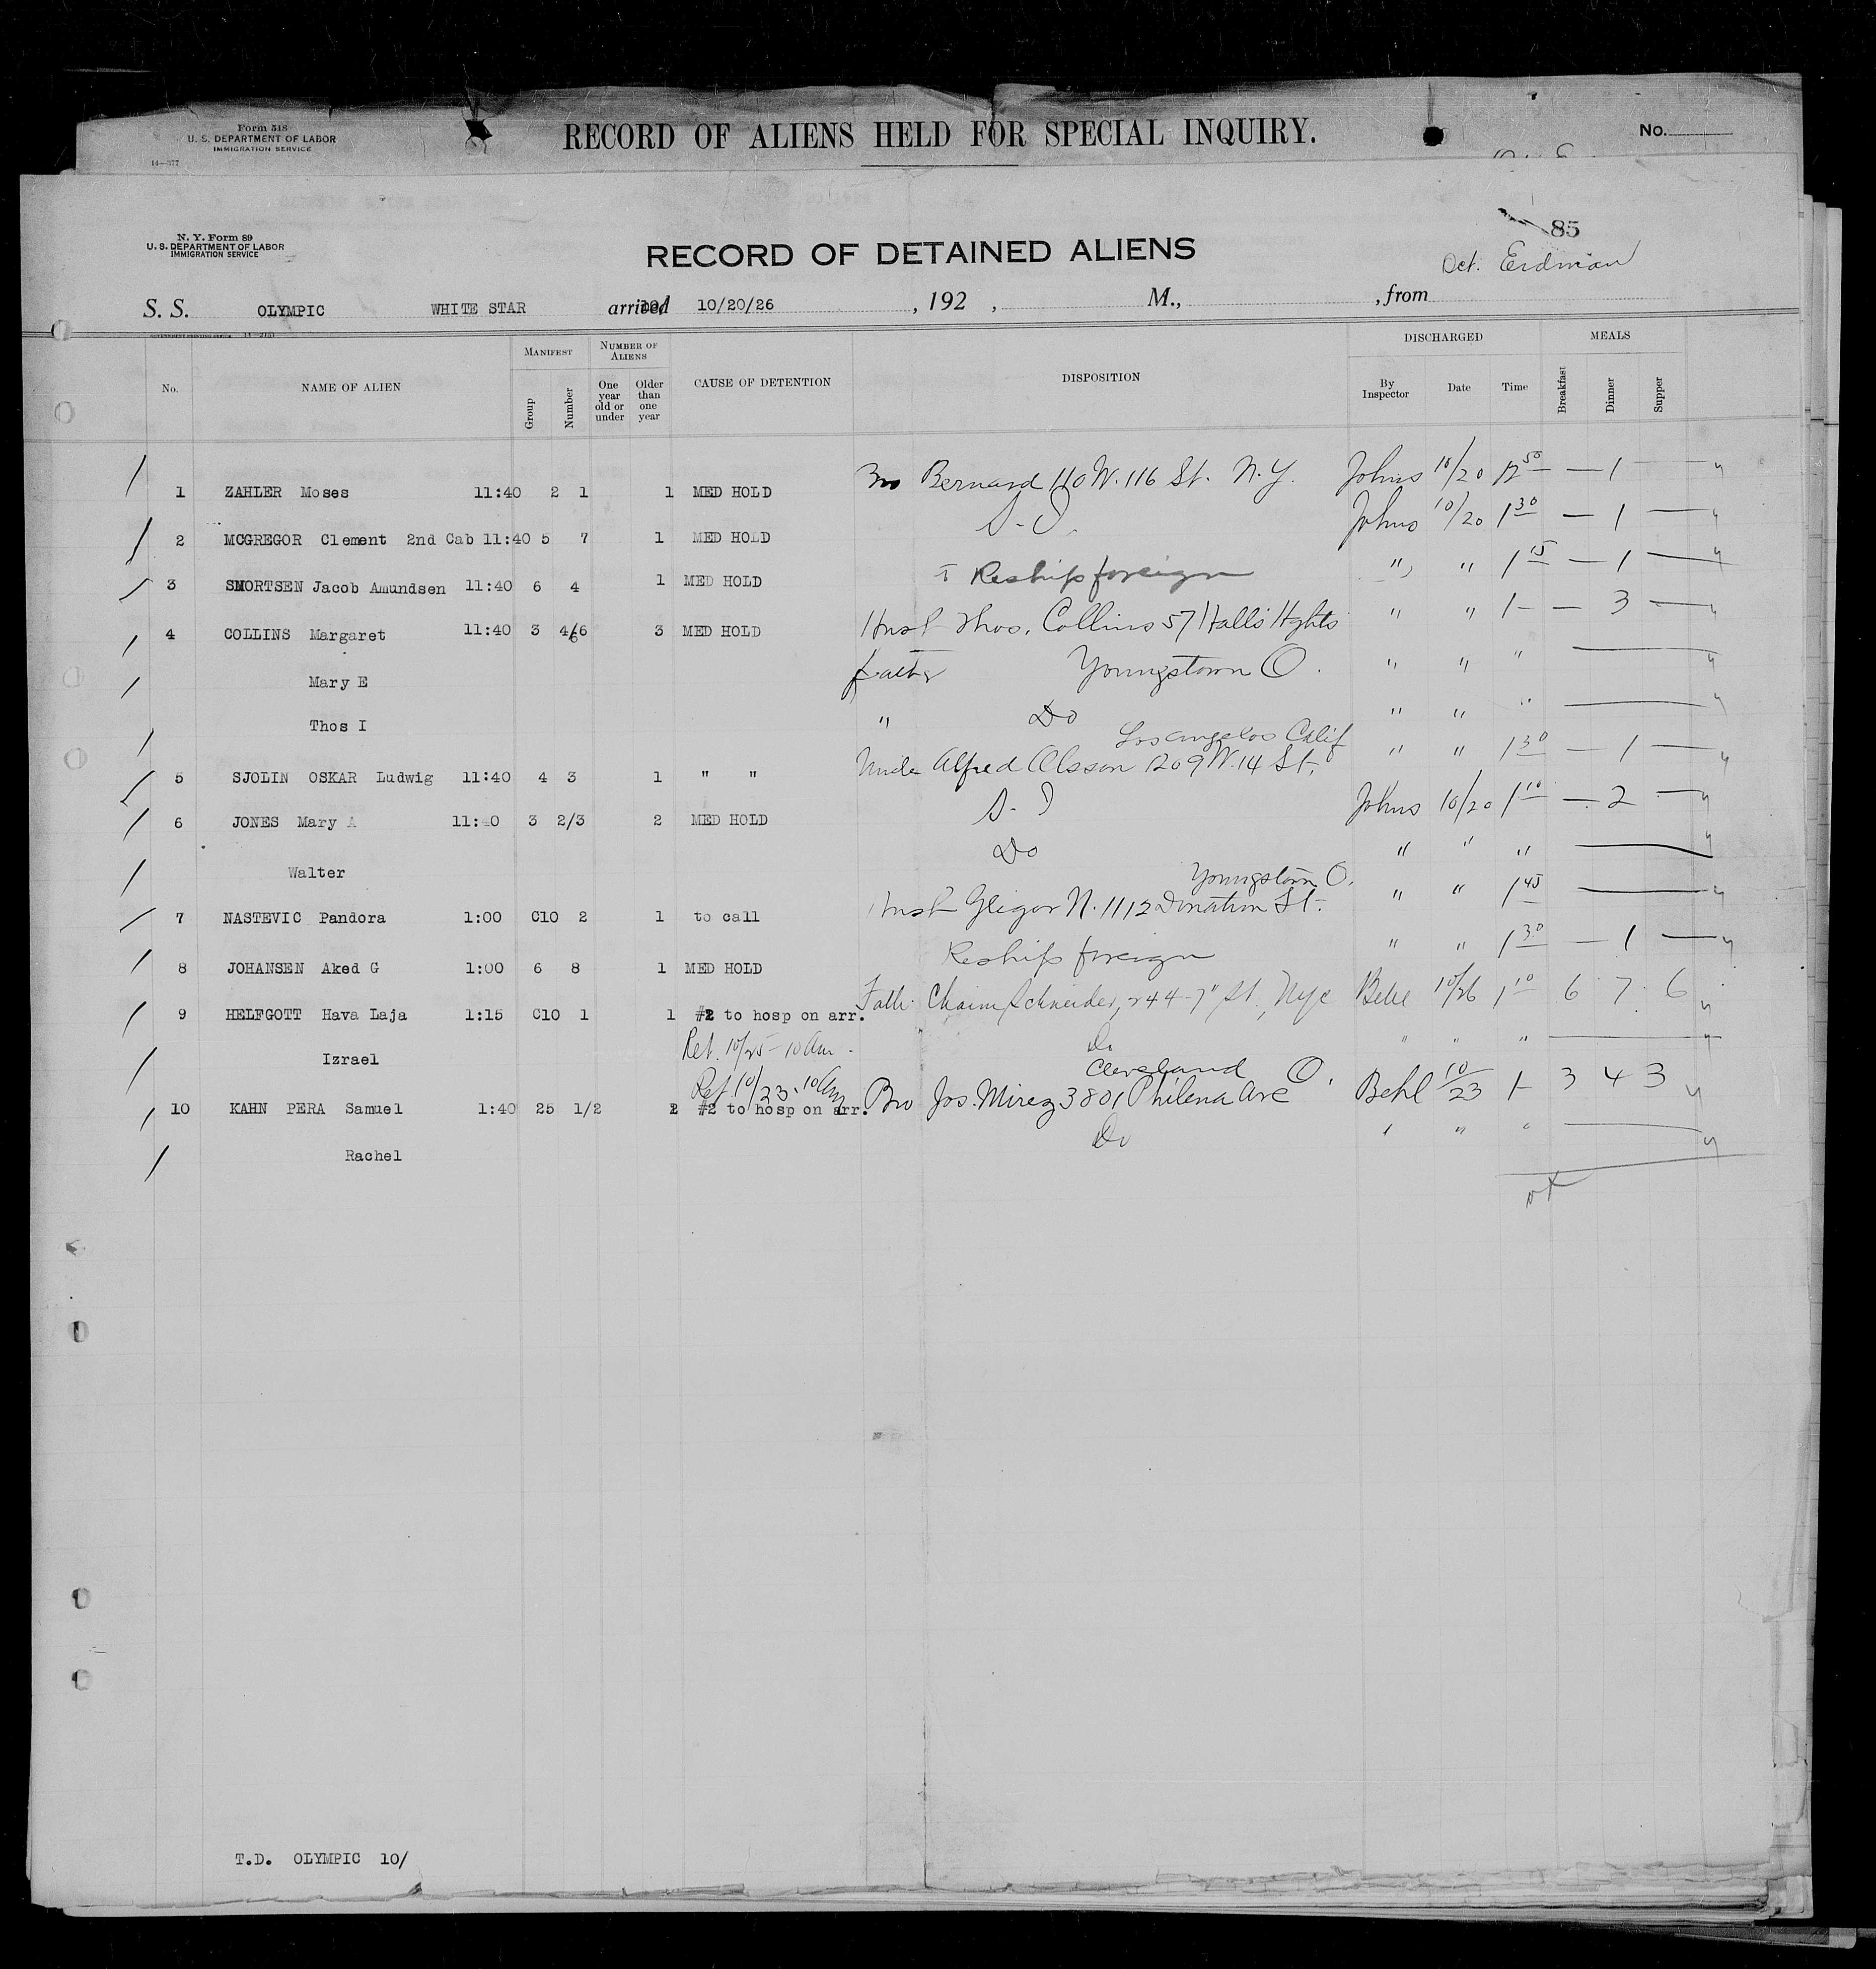 Form 518
U. S. DEPARTMENT OF LABOR
IMMIGRATION SERVICE
14—377
RECORD OF ALIENS HELD FOR SPECIAL INQUIRY.
No.
N. Y. Form 89
U. S. DEPARTMENT OF LABOR
IMMIGRATION SERVICE
85
RECORD OF DETAINED ALIENS
Det. Erdman
S. S. OLYMPIC WHITE STAR arrived 10/20/26 , 192 , M., , from
GOVERNMENT PRINTING OFFICE 14—2151
No. NAME OF ALIEN MANIFEST Group Number NUMBER OF ALIENS One year old or under Older than one year CAUSE OF DETENTION DISPOSITION DISCHARGED By Inspector Date Time MEALS Breakfast Dinner Supper
1 ZAHLER Moses 11:40 2 1 1 MED HOLD Bernard 110 W. 116 St. N.Y. Johns 10/20 12 50 — 1 —
2 MCGREGOR Clement 2nd Cab 11:40 5 7 1 MED HOLD S. I. Johns 10/20 1 30 — 1 —
3 SMORTSEN Jacob Amundsen 11:40 6 4 1 MED HOLD Reship foreign " " 1 15 — 1 —
4 COLLINS Margaret 11:40 3 4/6 3 MED HOLD Husb Thos. Collins 57 Halls Hghts " " 1 — — 3 —
Mary E father Youngstown O. " " "
Thos I " Do " " "
Los Angelos Calif
5 SJOLIN OSKAR Ludwig 11:40 4 3 1 " " Uncle Alfred Olsson 1209 W. 14 St. " " 1 30 — 1 —
6 JONES Mary A 11:40 3 2/3 2 MED HOLD S. I Johns 10/20 1 10 — 2 —
Walter Do " " "
Youngstown O.
7 NASTEVIC Pandora 1:00 C10 2 1 to call Husb Gligor N. 1112 Donation St. " " 1 45
8 JOHANSEN Aked G 1:00 6 8 1 MED HOLD Reship foreign " " 1 30 — 1 —
9 HELFGOTT Hava Laja 1:15 C10 1 1 #2 to hosp on arr. Fath. Chaim Schneider, 244-7" St., Nyc 10/26 1 10 6 7 6
Izrael Ret. 10/25 - 10 am - Do " " "
Ret 10/23. 10 am Cleveland O.
10 KAHN PERA Samuel 1:40 25 1/2 2 #2 to hosp on arr. Bro Jos. Mirez 3801 Philena Ave Behl 10/23 1 — 3 4 3
Rachel Do " " "
T.D. OLYMPIC 10/